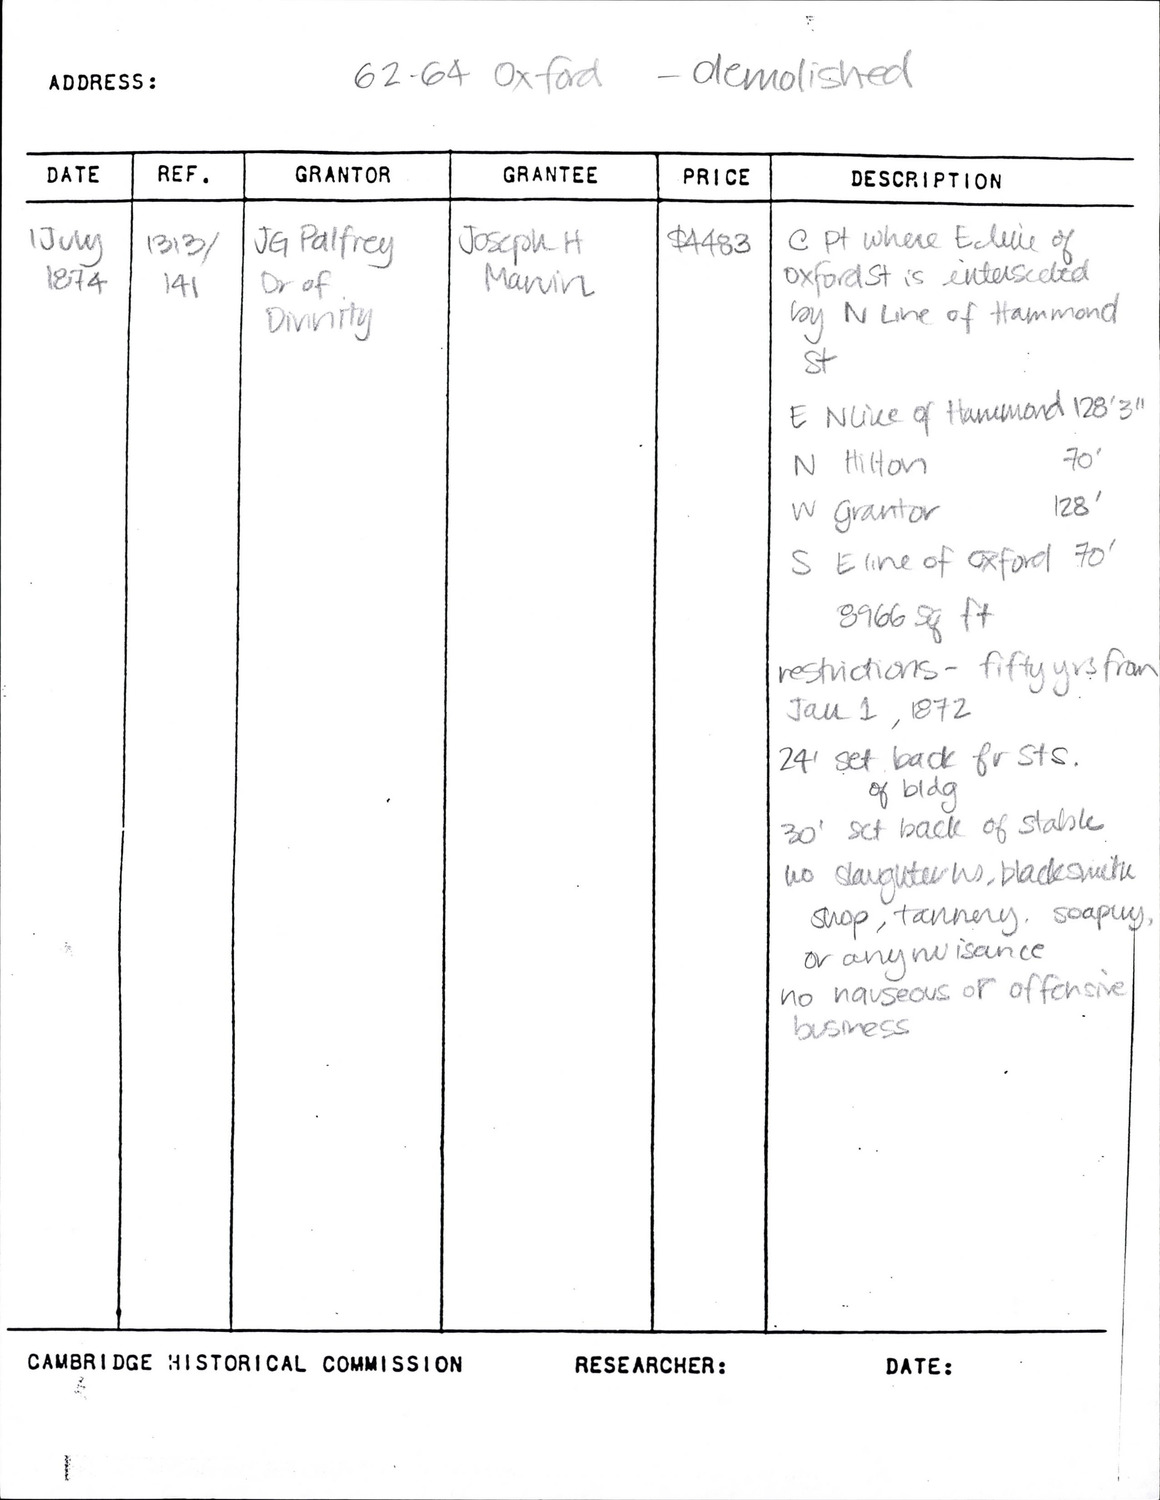 ADDRESS: 62-64 Oxford - demolished
DATE REF. GRANTOR GRANTEE PRICE DESCRIPTION
1 July 1874
1313/141
JG Palfrey
Dr of
Divinity
Joseph H
Marvin
$4483
@ pt where E line of
Oxford St is intersected
by N Line of Hammond
St
E N line of Hammond 128'3"
N Hilton 70'
W Grantor 128'
S E line of Oxford 70'
8966 sq ft
restrictions - fifty yrs from
Jan 1, 1872
24' set back fr Sts.
of bldg
30' set back of stable
no slaughter hs, blacksmith
shop, tannery, soapuy,
or any nuisance
no nauseous or offensive
business
CAMBRIDGE HISTORICAL COMMISSION RESEARCHER: DATE: